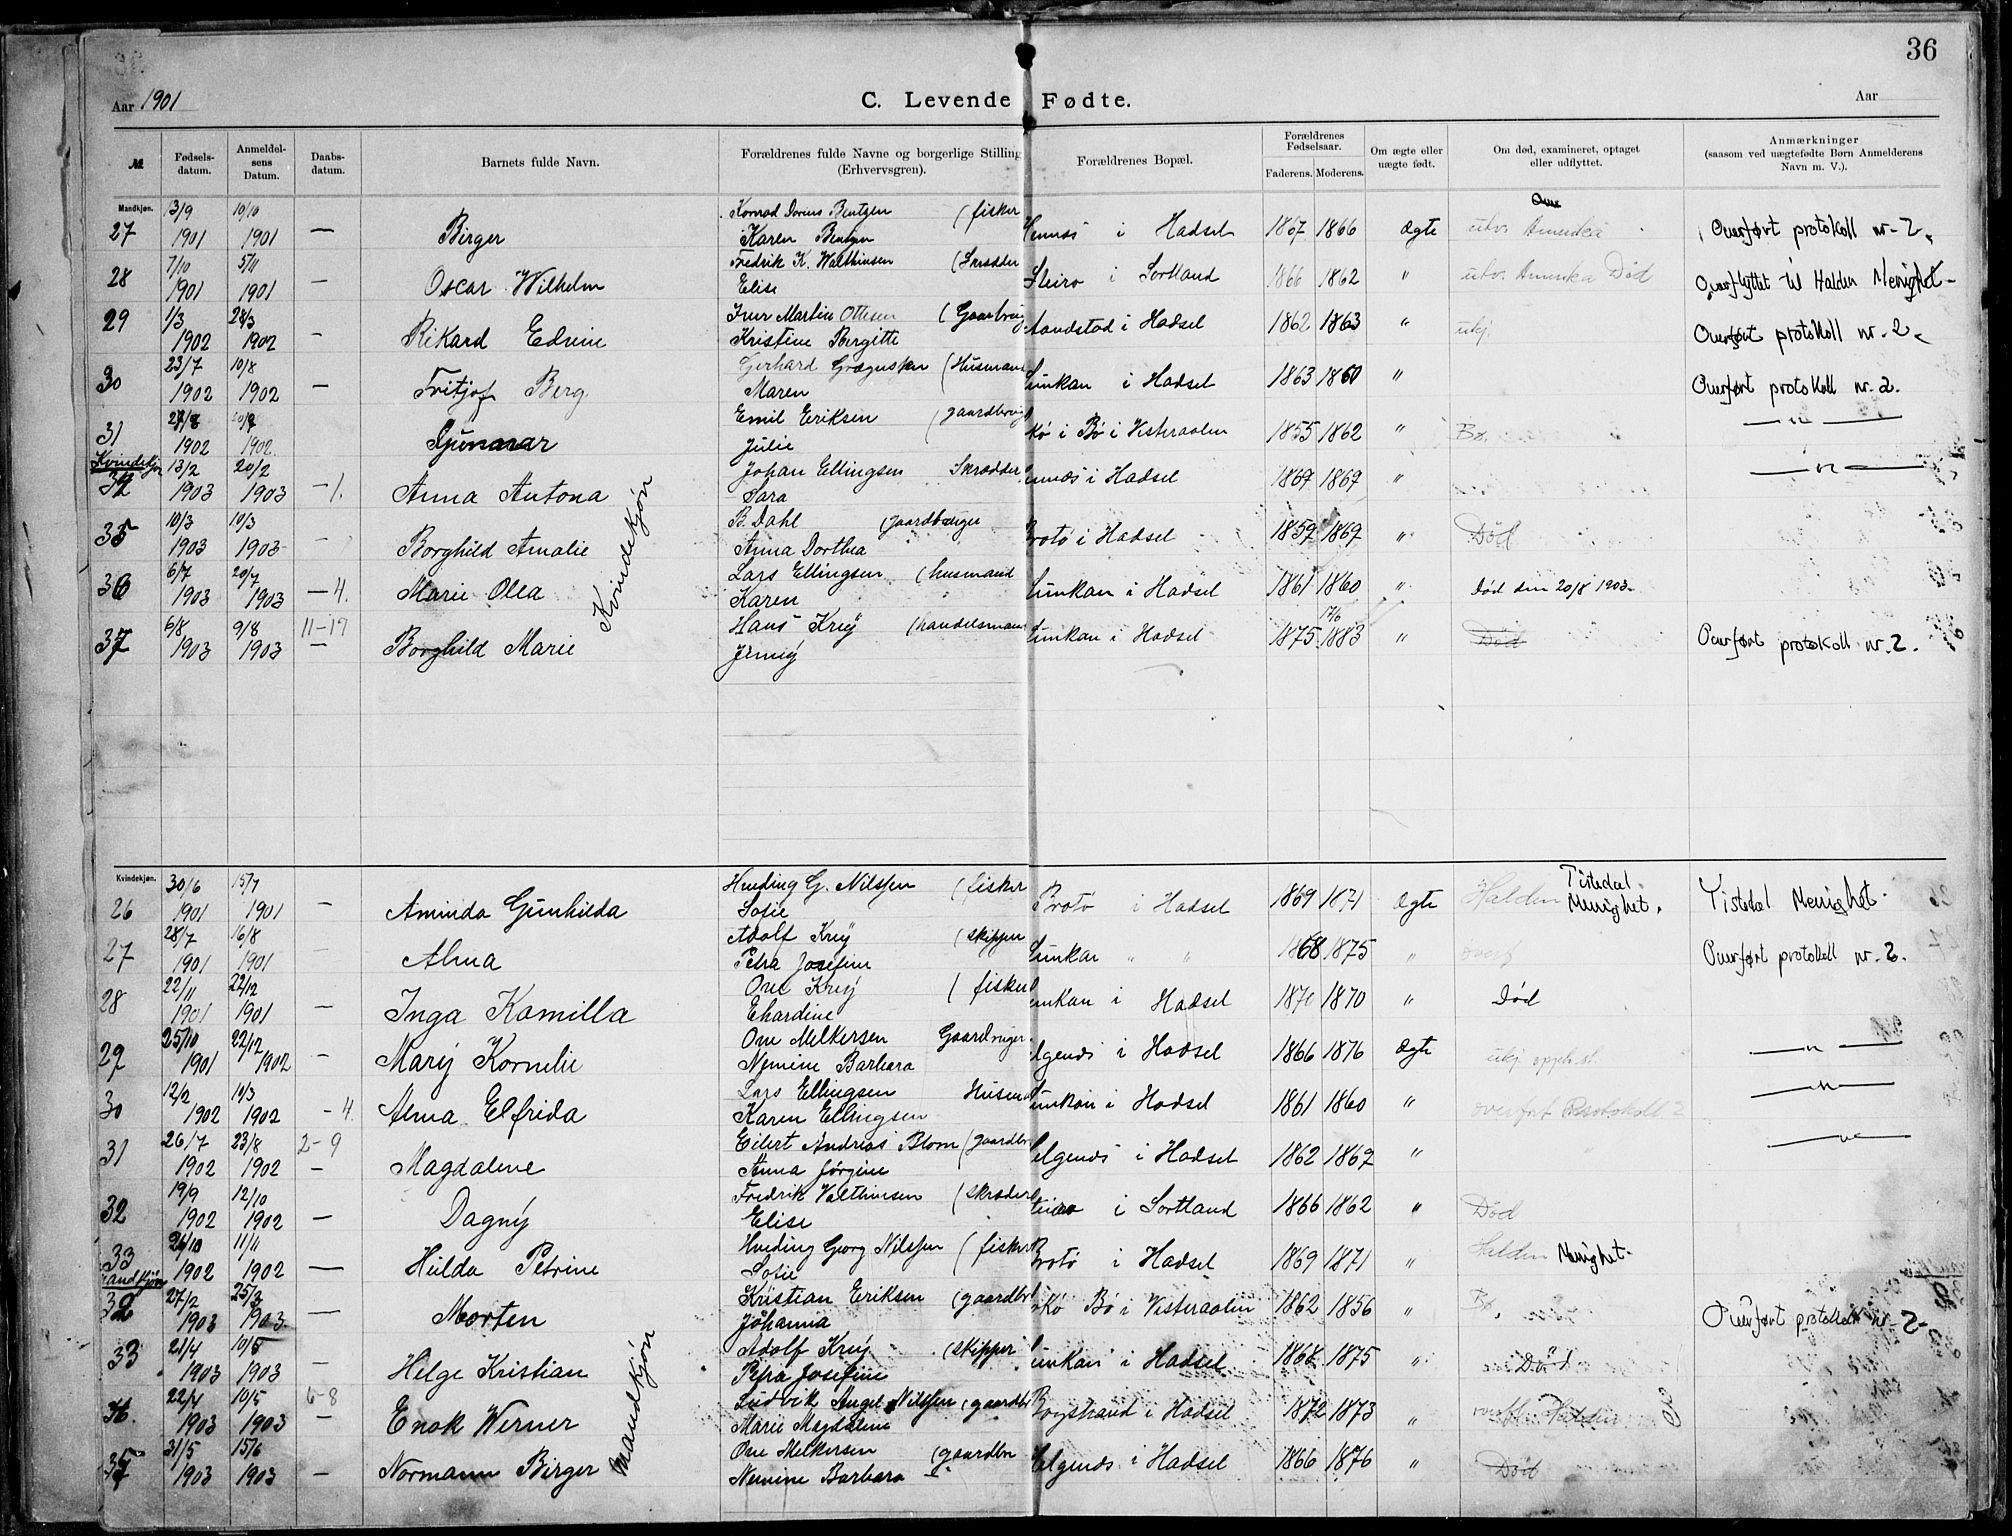 36
Aar 1901 C. Levende Fødte. Aar
№ Fødsels-datum. Anmeldelsens Datum. Daabs-datum. Barnets fulde Navn. Forældrenes fulde Navne og borgerlige Stilling (Erhvervsgren). Forældrenes Bopæl. Forældrenes Fødselsaar. Faderens. Moderens. Om ægte eller uægte født. Om død, examineret, optaget eller udflyttet. Anmærkninger (saasom ved uægtefødte Børn Anmelderens Navn m. V.).
Mandkjøn. 13/9 10/10 Konrad Dorius Bentzen (fisker
27 1901 1901 — Birger Karen Bentzen i Hadsel 1867 1866 Ægte utv. Amerika Overført protokoll nr. 2.
7/10 5/11 Fredrik K. Valthinsen (Skrædder
28 1901 1901 — Oscar Wilhelm Elise i Sortland 1866 1862 " utv. Amerika Død Overflyttet til Halden Menighet
1/3 28/3 Martin Ottesen (Gaardbrug
29 1902 1902 — Rikard Edvin Kristine Bergitte i Hadsel 1862 1863 " utfl. Overført protokoll nr. 2.
23/7 10/8 Gerhard (Husmand
30 1902 1902 — Fritjof Berg Maren i Hadsel 1863 1860 " Overført protokoll nr. 2.
Emil Eriksen (gaardbrug
31 1902 1902 Gunnar Julie i Bø i Vesteraalen 1855 1862 " Bø. — " —
Kvindekjøn 13/2 20/2 Johan Ellingsen Skrædder
32 1903 1903 — 1. Anna Antona Sara i Hadsel 1867 1869 " — " —
10/3 10/3 B. Dahl (gaardbruger
35 1903 1903 Borghild Amalie Anna Dorthea Brotø i Hadsel 1859 1869 " Død
6/7 20/7 Lars Ellingsen (husmand
36 1903 1903 — 4. Marie Olea Karen i Hadsel 1861 1860 " Død den 20/8 1903.
6/8 9/8 11-17 Hans Krey (handelsmand 17/6
37 1903 1903 — Borghild Marie Jenny i Hadsel 1875 1883 " Død Overført protokoll nr. 2.
Kvindekjøn
Kvindekjøn. 30/6 15/7 Hveding G. Nilssen (fisker Tistedal
26 1901 1901 — Aminda Gunhilda Sofie Brotø i Hadsel 1869 1871 Ægte Halden Menighet. Tistedal Menighet.
28/7 16/8 Adolf Krey (skipper
27 1901 1901 Alma Petra Josefine " " 1868 1875 " overf Overført protokoll nr. 2.
22/11 22/12 Ove Krey (fisker
28 1901 1901 — Inga Kamilla Ehardine i Hadsel 1870 1870 " Død
25/10 22/12 Ove Melkersen Gaardbruger
29 1901 1902 — Mary Kornelie Nemine Barbara i Hadsel 1866 1876 Ægte — " —
12/2 10/3 Lars Ellingsen Husmd
30 1902 1902 - 4. Alma Elfrida Karen Ellingsen i Hadsel 1861 1860 " overført Protokoll 2 — " —
26/7 23/8 2-9 Eilert Andreas Blom (gaardbr
31 1902 1902 — Magdalene Anna Jørgine i Hadsel 1862 1869 " — " —
19/9 12/10 Fredrik Valthinsen (skræder
32 1902 1902 — Dagny Elise i Sortland 1866 1862 " Død
11/11 Hveding Georg Nilssen (fisker
33 1902 1902 — Hilda Petrine Sofie Brotø i Hadsel 1869 1871 " Halden Menighet.
Mandkjøn 27/2 25/3 Kristian Eriksen (gaardbr
32 1903 1903 — Morten Johanna Bø i Vesteraalen 1862 1856 " Bø. Overført protokoll nr. 2.
21/4 10/5 Adolf Krey (skipper
33 1903 1903 — Helge Kristian Petra Josefine i Hadsel 1868 1875 " Død
22/4 10/5 6-8 Ludvik Angel Nilssen (gaardbr
34. 1903 1903 — Enok Werner Marie Magdalene i Hadsel 1872 1873 " Halden
31/5 15/6 Ove Melkersen (gaardbr
35 1903 1903 — Normann Birger Nemine Barbara i Hadsel 1866 1876 " Død
Mandkjøn